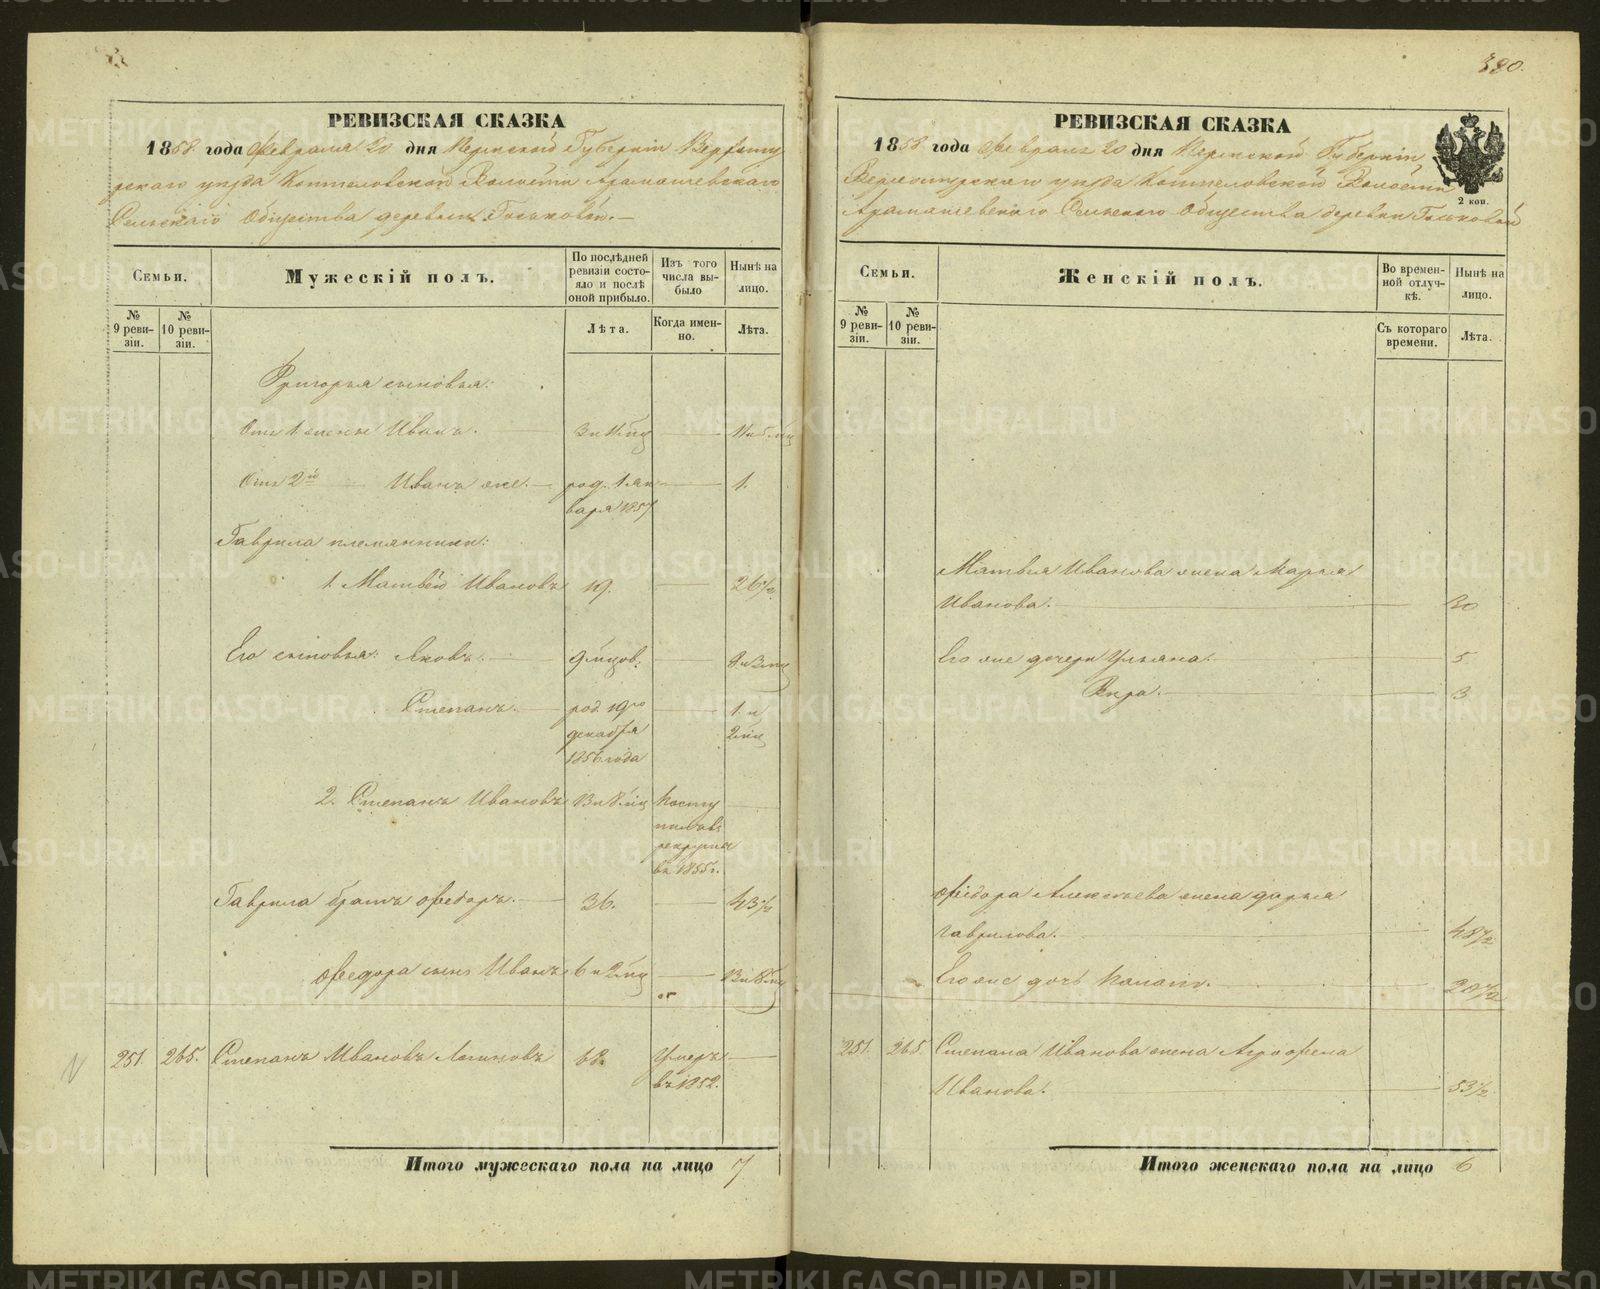 380.
РЕВИЗСКАЯ СКАЗКА
1858 года Февраля 20 дня Пермской Губернiи Верхоту
рскаго уѣзда Коптеловской Волости Арамашевскаго
Сельскаго Общества деревни Госьковой.
Семьи.
Мужескiй полъ.
По послѣдней ревизiи состояло и послѣ оной прибыло.
Изъ того числа выбыло
Нынѣ на лицо.
№ 9 ревизiи.
№ 10 ревизiи.
Лѣта.
Когда именно.
Лѣта.
Григорья сыновья:
Отъ 1 жены Иванъ.
Отъ 2й Иванъ же. род. 1 января 1857 1.
Гаврила племянники:
1. Матвѣй Ивановъ 19. 26½
Его сыновья: Яковъ. 9 мцов.
Степанъ. род. 19го декабря 1856 года 1. и 2 мц
2. Степанъ Ивановъ поступилъ в рекруты въ 1855 г.
Гаврила братъ Федоръ. 36. 43½
Федора сынъ Иванъ 6 и 2 мц
251. 265. Степанъ Ивановъ Логиновъ 68. умеръ въ 1852.
Итого мужескаго пола на лицо 7
РЕВИЗСКАЯ СКАЗКА
1858 года Февраля 20 дня Пермской Губернiи
Верхотурскаго уѣзда Коптеловской Волости
Арамашевскаго Сельскаго Общества деревни Госьковой
2 коп.
Семьи.
Женскiй полъ.
Во временной отлучкѣ.
Нынѣ на лицо.
№ 9 ревизiи.
№ 10 ревизiи.
Съ котораго времени.
Лѣта.
Матвѣя Иванова жена Марья
Иванова. 30
Его же дочери Ульяна. 5
3
Федора Алексѣева жена Дарья
Гаврилова. 48½
Его же дочь
251. 265. Степана Иванова жена Агрофена
Иванова. 53½
Итого женскаго пола на лицо 6
METRIKI.GASO-URAL.RU